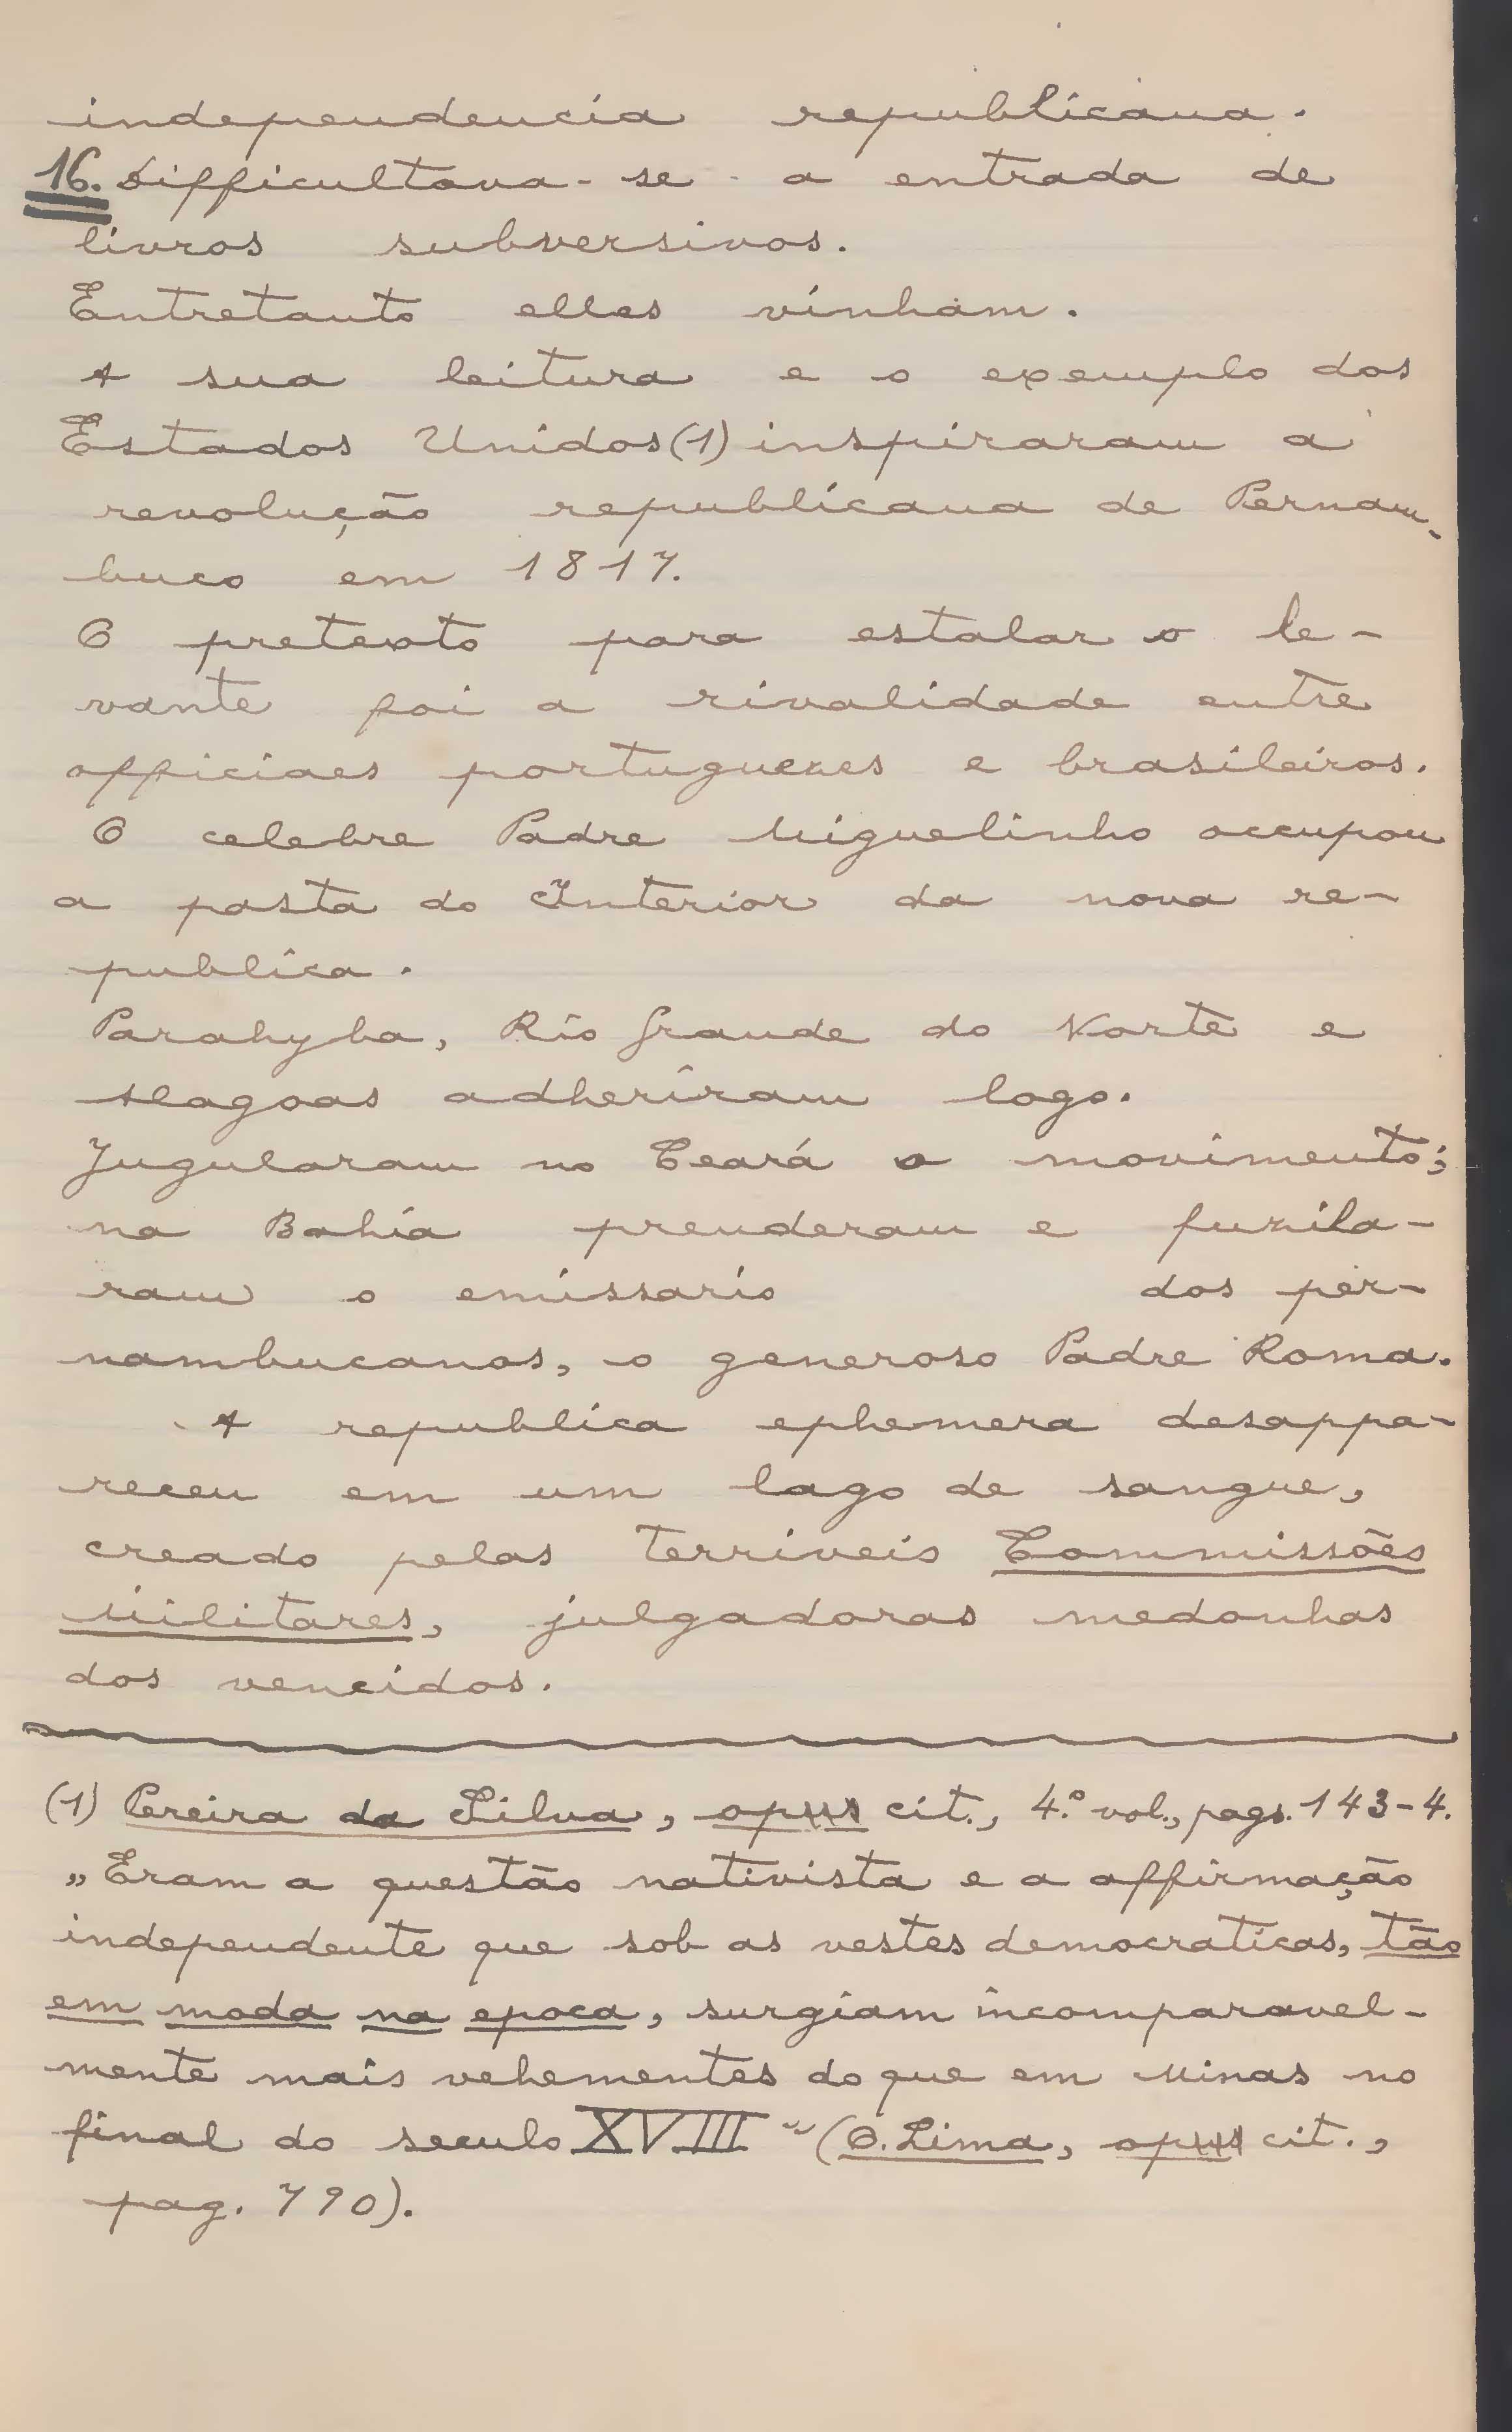 independencia republicana.
16. Difficultava-se a entrada de
livros subversivos.
Entretanto elles vinham.
A sua leitura e o exemplo dos
Estados Unidos (1) inspiraram a
revolução republicana de Pernam-
buco em 1817.
O pretexto para estalar o le-
vante foi a rivalidade entre
officiaes portuguezes e brasileiros.
O celebre Padre Miguelinho occupou
a pasta do Interior da nova re-
publica.
Parahyba, Rio Grande do Norte e
Alagoas adheriram logo.
Jugularam no Ceará o movimento;
na Bahia prenderam e fuzila-
ram o emissario dos per-
nambucanos, o generoso Padre Roma.
A republica ephemera desappa-
receu em um lago de sangue,
creado pelas terriveis Commissões
Militares, julgadoras medonhas
dos vencidos.
(1) Pereira da Silva, opus cit., 4.º vol., pags. 143-4.
„Eram a questão nativista e a affirmação
independente que sob as vestes democraticas, tão
em moda na epoca, surgiam incomparavel-
mente mais vehementes do que em Minas no
final do seculo XVIII" (O. Lima, opus cit.,
pag. 790).